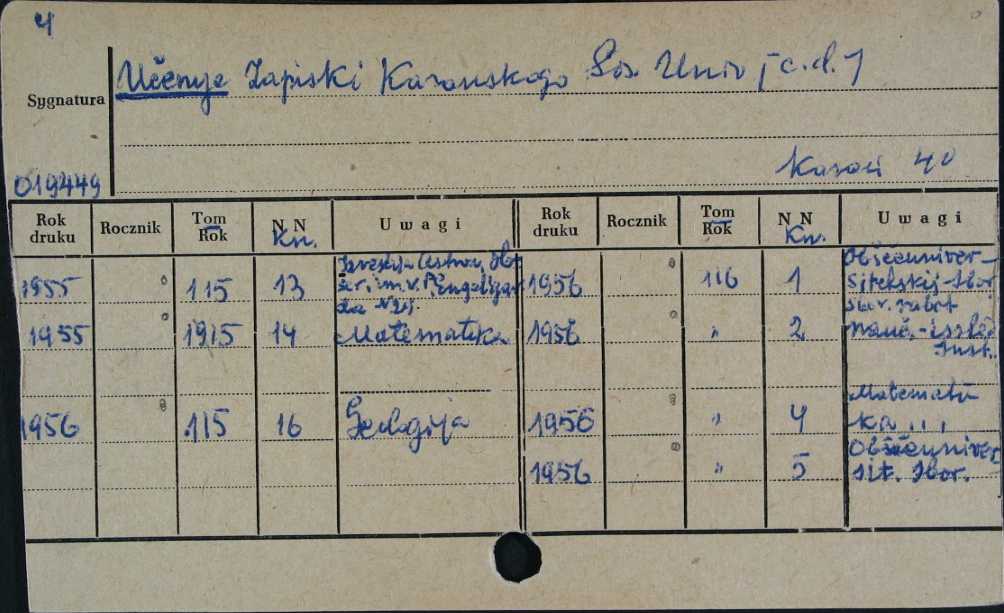 4
Učenye Zapiski Kazanskogo Gos. Univ [c.d.]
Sygnatura
Kazań 40
019449
Rok druku Rocznik Tom Rok N N Kn. Uwagi Rok druku Rocznik Tom Rok N N Kn. Uwagi
1955 115 13 Izvestija Astron. Obser. im. V. P. Engelgardta N 29.
1956 116 1 Obščeuniversitetskij Sbor
1955 1915 14 Matematika
1956 " 2 nauč.-issled. Inst.
1956 115 16 Geologija
1956 " 4 Matematika " "
1956 " 5 Obščeuniversit. Sbor.